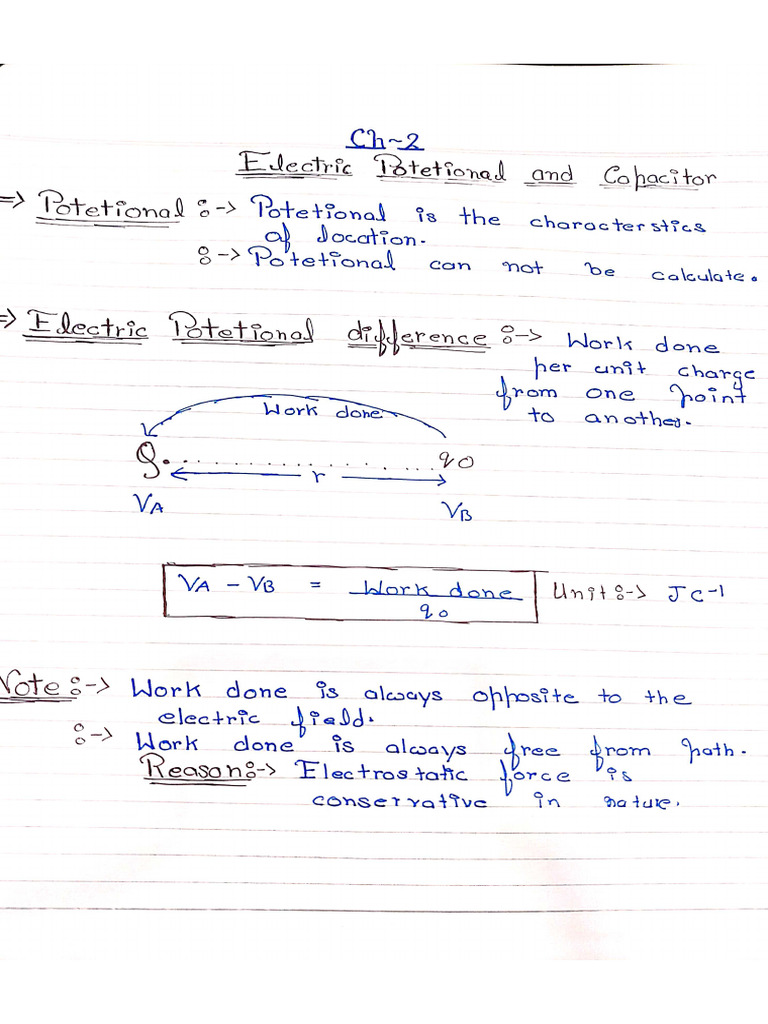 Ch~2
Electric Potetional and Capacitor
=> Potetional :-> Potetional is the characterstics
of location.
:-> Potetional can not be calculate.
=> Electric Potetional difference :-> Work done
per unit charge
from one point
to another.
Work done
Q. q0
r
VA VB
VA - VB = Work done / q0 Unit:-> J C⁻¹
Note :-> Work done is always opposite to the
electric field.
:-> Work done is always free from path.
Reason:-> Electrostatic force is
conservative in nature.